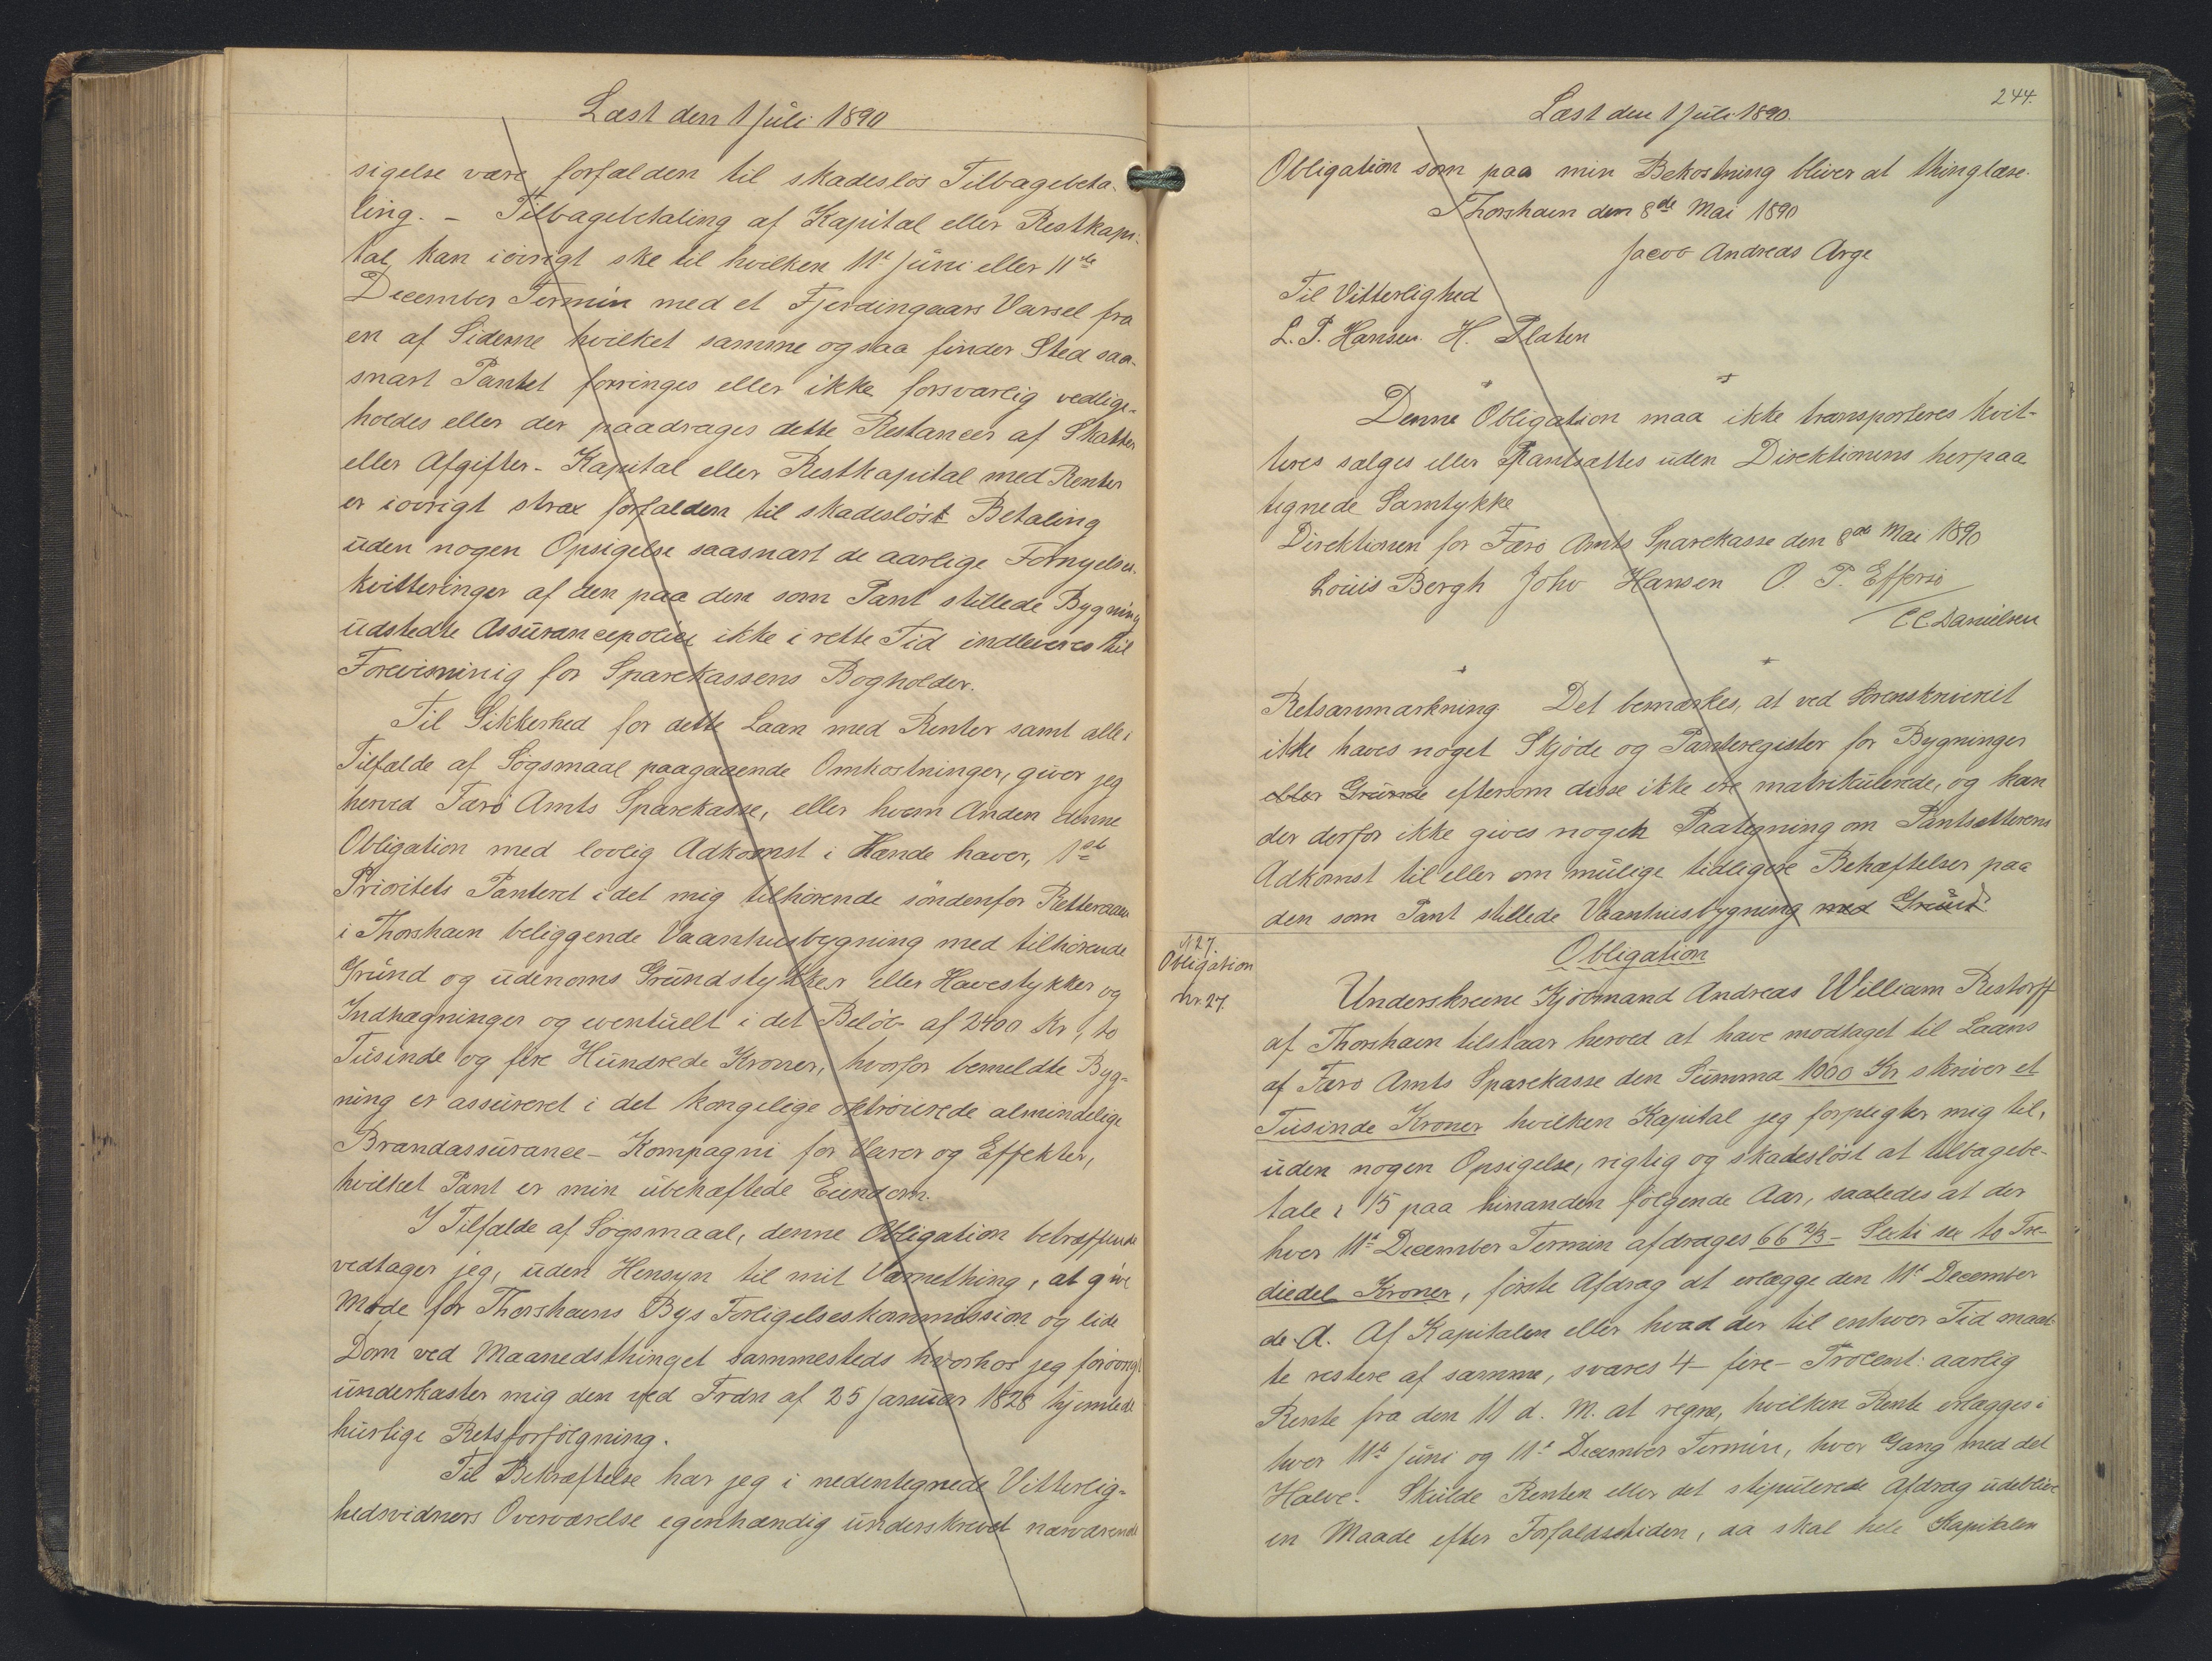 Læst den 1 Juli 1890
sigelse være forfalden til skadeslös Tilbagebeta-
ling. - Tilbagebetaling af Kapital eller Restkapi-
tal kan iövrigt ske til hvilken 11te Juni eller 11te
December Termin med et Fjerdingaars Varsel fra
en af Siderne hvilket samme ogsaa finder Sted saa-
snart Pantet forringes eller ikke forsvarlig vedlige-
holdes eller der paadrages dette Restancer af Skatter
eller Afgifter - Kapital eller Restkapital med Renter
er iövrigt strax forfalden til skadeslöst Betaling
uden nogen Opsigelse saasnart de aarlige Fornyelses-
kvitteringer af den paa den som Pant stillede Bygning
udstedte Assurancepolice ikke i rette Tid indleveres til
Forevisning for Sparekassens Bogholder.
Til Sikkerhed for dette Laan med Renter samt alle i
Tilfælde af Sögsmaal paagaaende Omkostninger, giver jeg
herved Færö Amts Sparekasse, eller hvem Anden denne
Obligation med lovlig Adkomst i Hænde haver, 1ste
Prioritets Panteret i det mig tilhörende söndenfor Retteraaen
i Thorshavn beliggende Vaanhusbygning med tilhörende
Grund og udenoms Grundstykker eller Havestykker og
Indhægninger og eventuelt i det Belöb af 2400 Kr, to
Tusinde og fire Hundrede Kroner, hvorfor bemeldte Byg-
ning er assureret i det kongelige oktroierede almindelige
Brandassurance- Kompagni for Varer og Effekter,
hvilket Pant er min ubehæftede Eiendom.
I Tilfælde af Sögsmaal, denne Obligation betræffende
vedtager jeg, uden Hensyn til mit Værnething, at give
Möde for Thorshavns Bys Forligelseskommission og lide
Dom ved Maanedsthinget sammesteds hvorhos jeg forövrigt
underkaster mig den ved Frdn af 25 Januar 1828 hjemlede
hurtige Retsforfölgning.
Til Bekræftelse har jeg i nedentegnede Vitterlig-
hedsvidners Overværelse egenhændig underskrevet nærværende
244.
Læst den 1 Juli 1890.
Obligation som paa min Bekostning bliver at thinglæse.
Thorshavn den 8de Mai 1890
Jacob Andreas Arge
Til Vitterlighed
L. P. Hansen. H. Platen
Denne Obligation maa ikke transporteres kvit-
teres sælges eller Pantsættes uden Direktionens herpaa
tegnede Samtykke
Direktionen for Færö Amts Sparekasse den 8de Mai 1890
Louis Bergh Johs Hansen O. P. Effersö
/ C C Danielsen
Retsanmærkning Det bemærkes, at ved Sorenskriveriet
ikke haves noget Skjöde og Panteregister for Bygninger
eller Grunde eftersom disse ikke ere matrikulerede, og kan
der derfor ikke gives nogen Paategning om Pantsætterens
Adkomst til eller om mulige tidligere Behæftelser paa
den som Pant stillede Vaanhusbygning med Grund
127.
Obligation
Nr. 27.
Obligation
Underskrevne Kjöbmand Andreas William Restorff
af Thorshavn tilstaar herved at have modtaget til Laans
af Færö Amts Sparekasse den Summa 1000 Kr skriver et
Tusinde Kroner hvilken Kapital jeg forpligter mig til,
uden nogen Opsigelse, rigtig og skadeslöst at tilbagebe-
tale i 15 paa hinanden fölgende Aar, saaledes at der
hver 11te December Termin afdrages 66 2/3 - Sexti sex to Tre-
diedel Kroner, förste Afdrag at erlægge den 11te December
d. A. Af Kapitalen eller hvad der til enhver Tid maat-
te restere af samme, svares 4 - fire - Procent: aarlig
Rente fra den 11 d. M. at regne, hvilken Rente erlægges i
hver 11te Juni og 11te December Termin, hver Gang med det
Halve. Skulde Renten eller det stipulerede Afdrag udeblive
en Maade efter Forfaldstiden, da skal hele Kapitalen